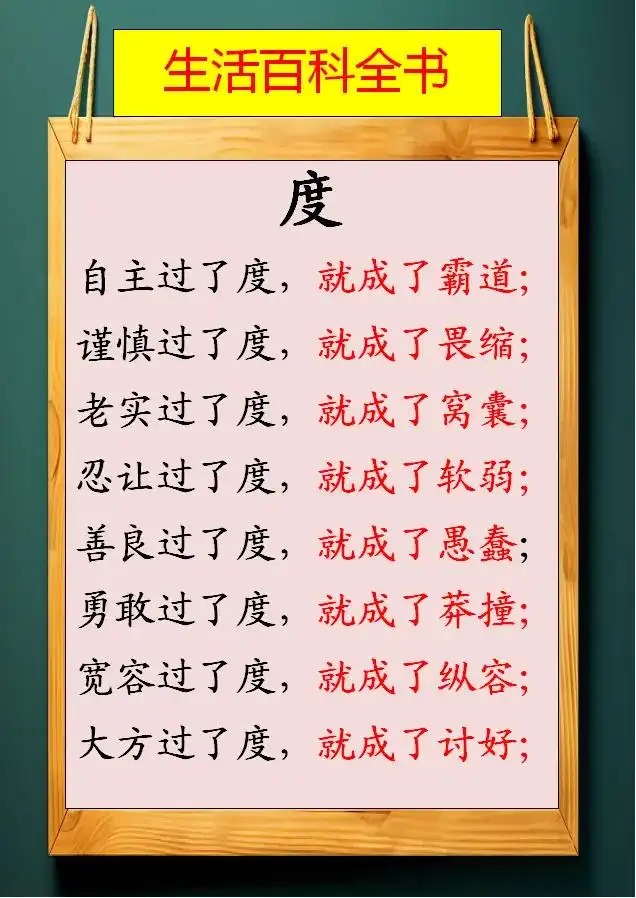 生活百科全书
度
自主过了度，就成了霸道;
谨慎过了度，就成了畏缩;
老实过了度，就成了窝囊;
忍让过了度，就成了软弱;
善良过了度，就成了愚蠢;
勇敢过了度，就成了莽撞;
宽容过了度，就成了纵容;
大方过了度，就成了讨好;